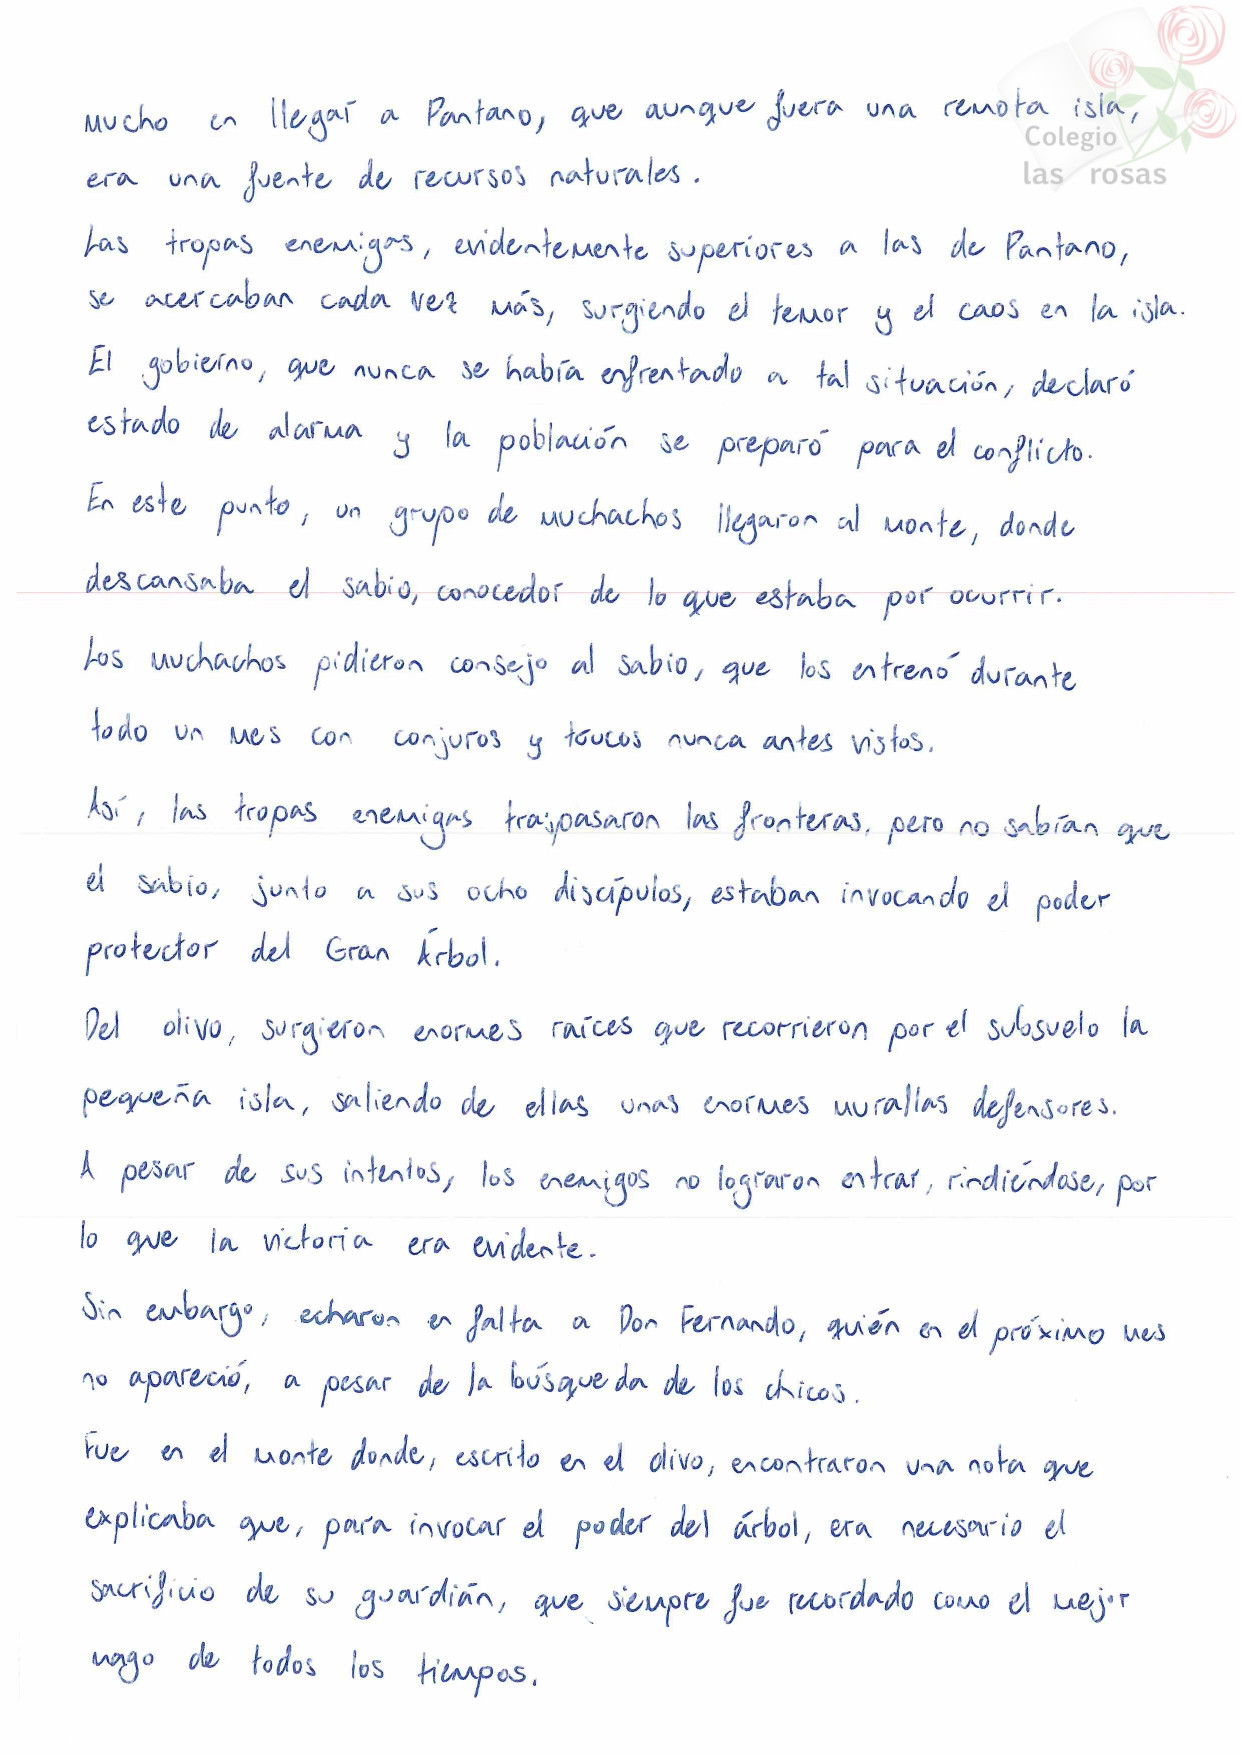 Colegio
las rosas
mucho en llegar a Pantano, que aunque fuera una remota isla,
era una fuente de recursos naturales.
Las tropas enemigas, evidentemente superiores a las de Pantano,
se acercaban cada vez más, surgiendo el temor y el caos en la isla.
El gobierno, que nunca se había enfrentado a tal situación, declaró
estado de alarma y la población se preparó para el conflicto.
En este punto, un grupo de muchachos llegaron al monte, donde
descansaba el sabio, conocedor de lo que estaba por ocurrir.
Los muchachos pidieron consejo al sabio, que los entrenó durante
todo un mes con conjuros y trucos nunca antes vistos.
Así, las tropas enemigas traspasaron las fronteras, pero no sabían que
el sabio, junto a sus ocho discípulos, estaban invocando el poder
protector del Gran Árbol.
Del olivo, surgieron enormes raíces que recorrieron por el subsuelo la
pequeña isla, saliendo de ellas unas enormes murallas defensores.
A pesar de sus intentos, los enemigos no lograron entrar, rindiéndose, por
lo que la victoria era evidente.
Sin embargo, echaron en falta a Don Fernando, quién en el próximo mes
no apareció, a pesar de la búsqueda de los chicos.
Fue en el monte donde, escrito en el olivo, encontraron una nota que
explicaba que, para invocar el poder del árbol, era necesario el
sacrificio de su guardián, que siempre fue recordado como el mejor
mago de todos los tiempos.